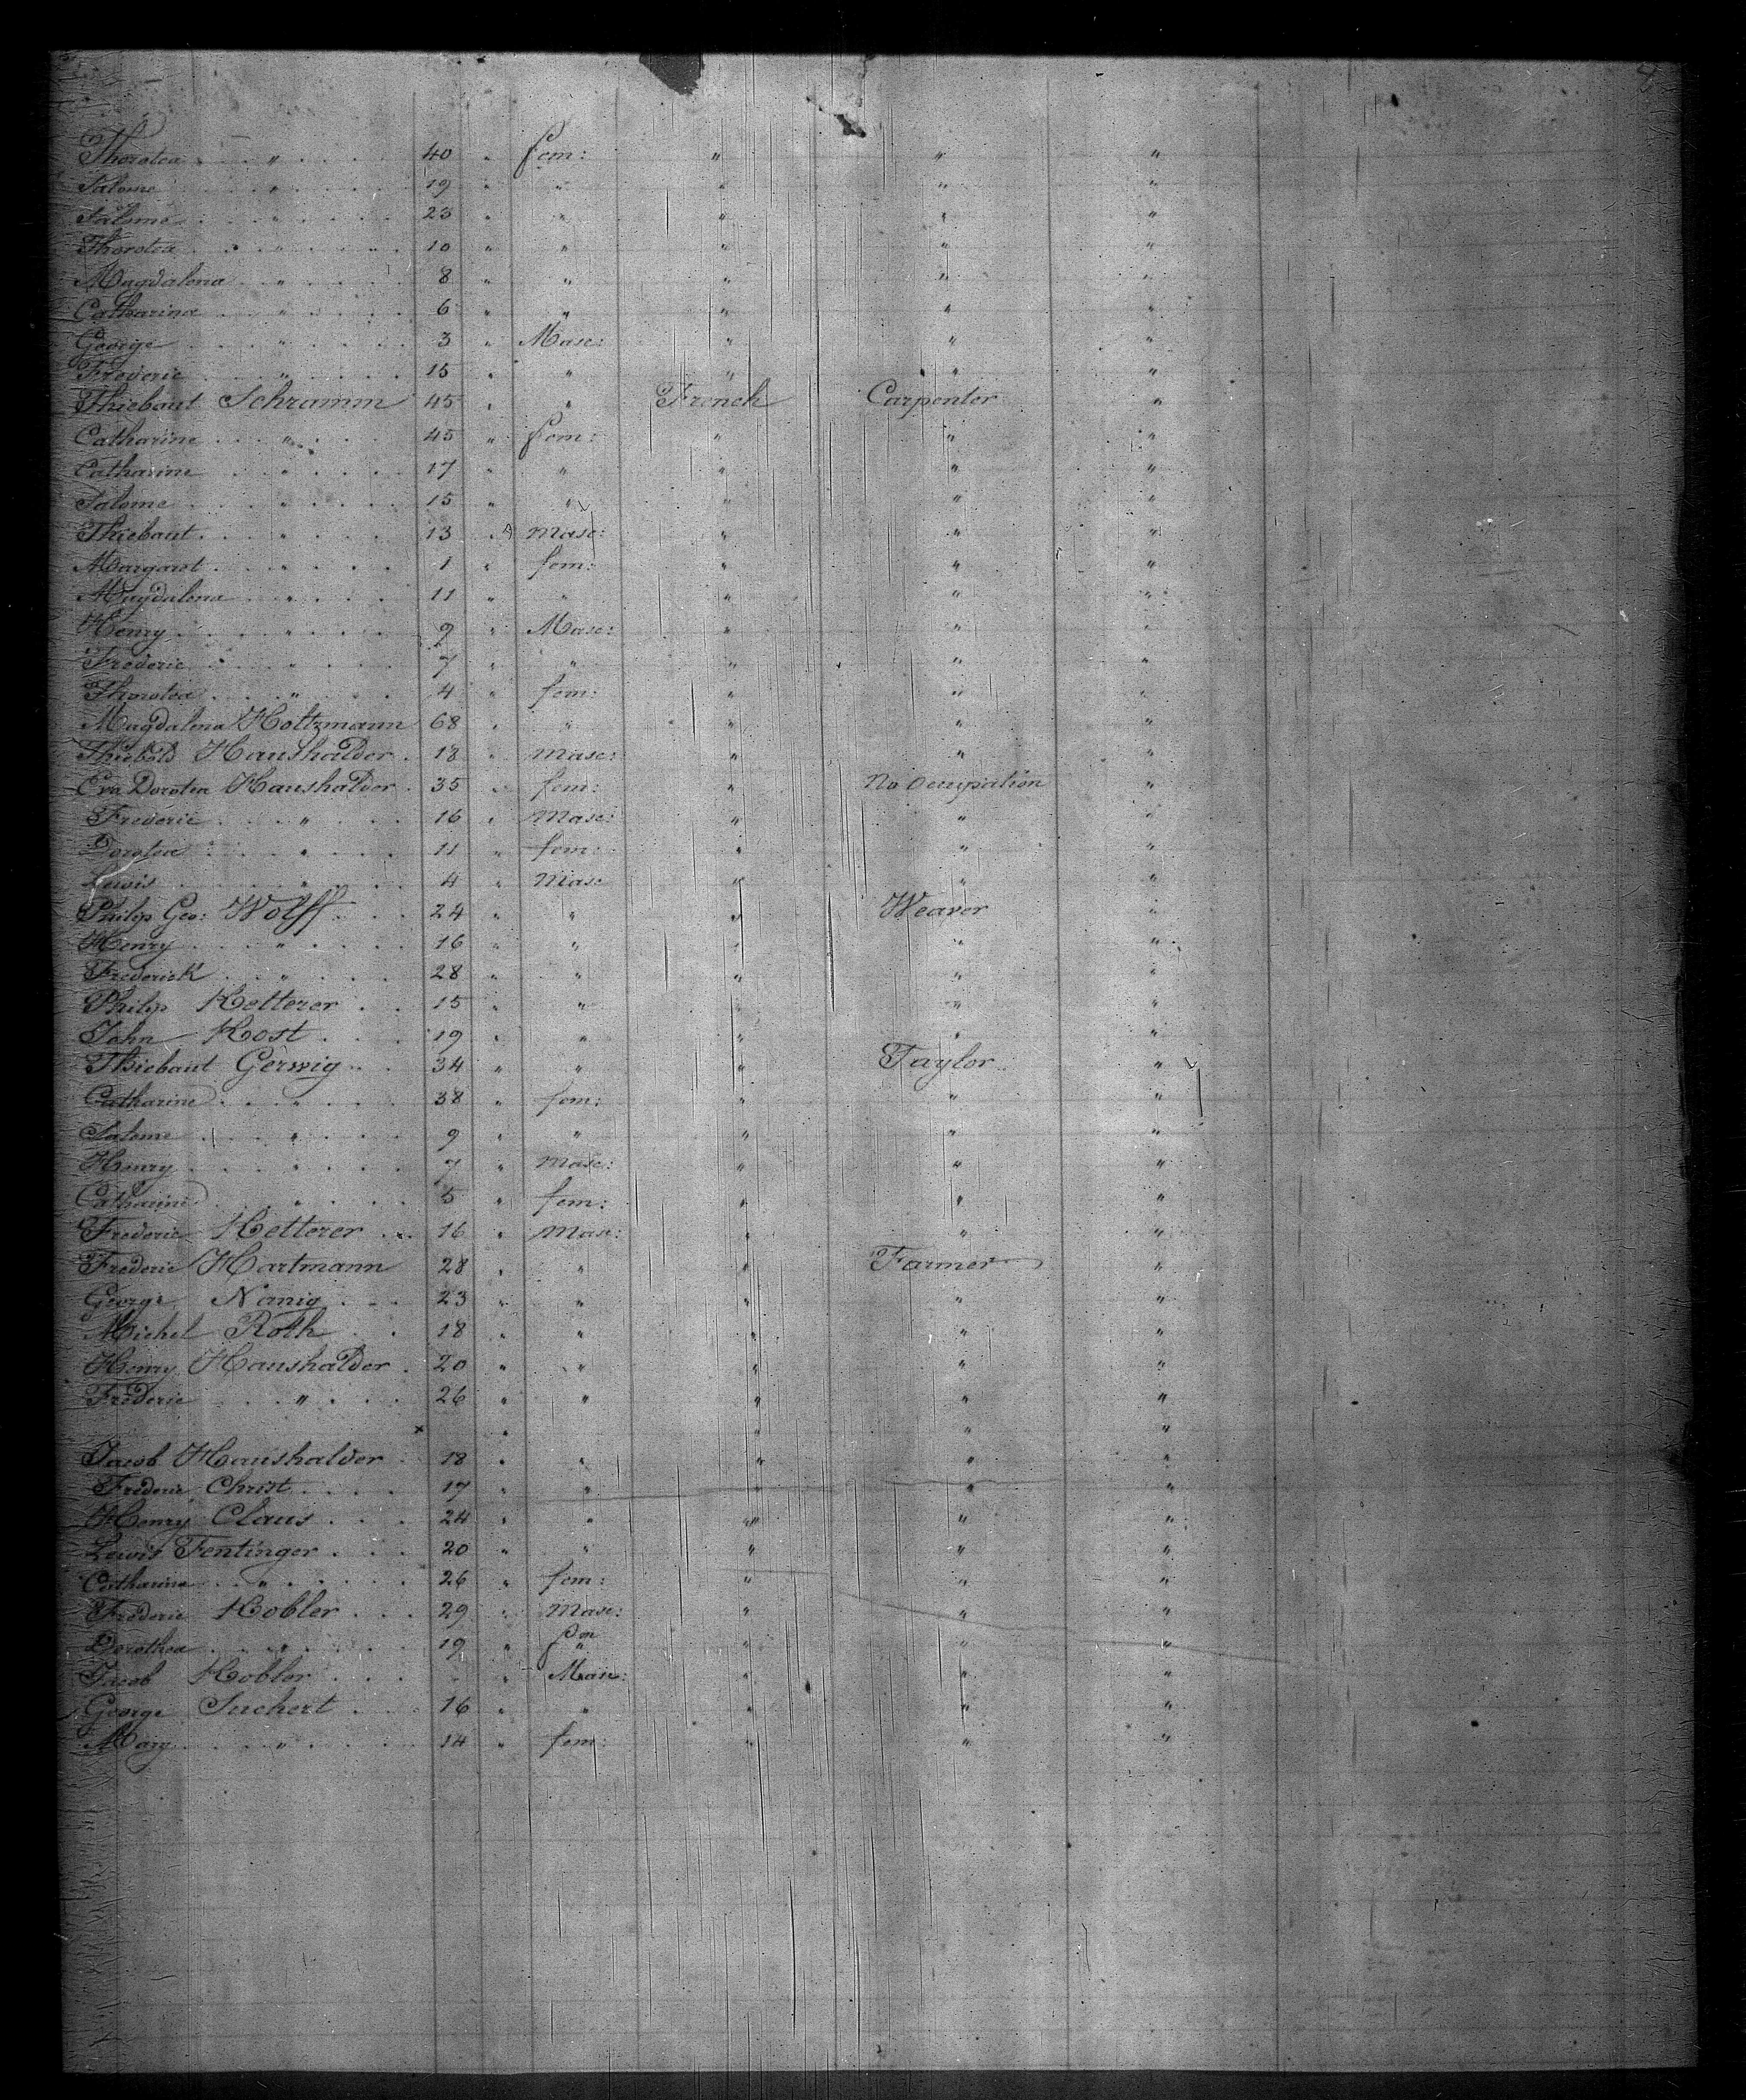 Thorotea . . . " . . . . 40 " fem: " " "
Salome . . . " . . . . 19 " " " " "
Salomé . . . " . . . . 23 " " " " "
Thorotea . . . " . . . . 10 " " " " "
Magdalena . . " . . . . 8 " " " " "
Catharina . . " . . . . 6 " " " " "
George . . . " . . . . 3 " Masc: " " "
Frederic . . . " . . . . 15 " " " " "
Thiebaut Schramm 45 " " French Carpenter "
Catharine . . . " . . . 45 " fem: " " "
Catharine . . " . . . . 17 " " " " "
Salome . . . " . . . . 15 " " " " "
Thiebaut . . . " . . . 13 " Masc: " " "
Margaret . . . " . . . 1 " fem: " " "
Magdalena . . " . . . 11 " " " " "
Henry . . . " . . . . 9 " Masc: " " "
Frederic . . . " . . . . 7 " " " " "
Thorotea . . . " . . . 4 " fem: " " "
Magdalena Holtzmann 68 " " " " "
Thiebold Haushalder . 18 " Masc: " " "
Eva Dorotea Haushalder . 35 " fem: " No Occupation "
Frederic . . . " . . . 16 " Masc: " " "
Dorotea . . . " . . . 11 " fem: " " "
Lewis . . . " . . . 4 " Masc " " "
Philip Geo: Wolff . . . 24 " " " Weaver "
Henry . . . " . . . . 16 " " " " "
Frederick . . . " . . . 28 " " " " "
Philip Ketterer . . 15 " " " " "
John Kost . . . . 19 " " " " "
Thiebaut Gerwig . . . 34 " " " Taylor "
Catharine . . . " . . . 38 " fem: " " "
Salome . . . " . . . 9 " " " " "
Henry . . . " . . . . 7 " Masc: " " "
Catharine . . " . . . . 5 " fem: " " "
Frederic Ketterer . . . 16 " Masc: " " "
Frederic Hartmann 28 " " " Farmer "
George Nanig . . . 23 " " " " "
Michel Roth . . 18 " " " " "
Henry Haushalder . 20 " " " " "
Frederic . . . " . . . 26 " " " " "
x " " " "
Jacob Haushalder . 18 " " " " "
Frederic Christ . . . . 17 " " " " "
Henry Claus . . . . 24 " " " " "
Lewis Fentinger . . . 20 " " " " "
Catharina . . " . . . . 26 " fem: " " "
Frederic Kobler . . . 29 " Masc: " " "
Dorothea . . . " . . . 19 " fem " " "
Jacob Kobler . . . " Masc: " " "
George Suchert . . . 16 " " " " "
Mary . . . " . . . . 14 " fem: " " "